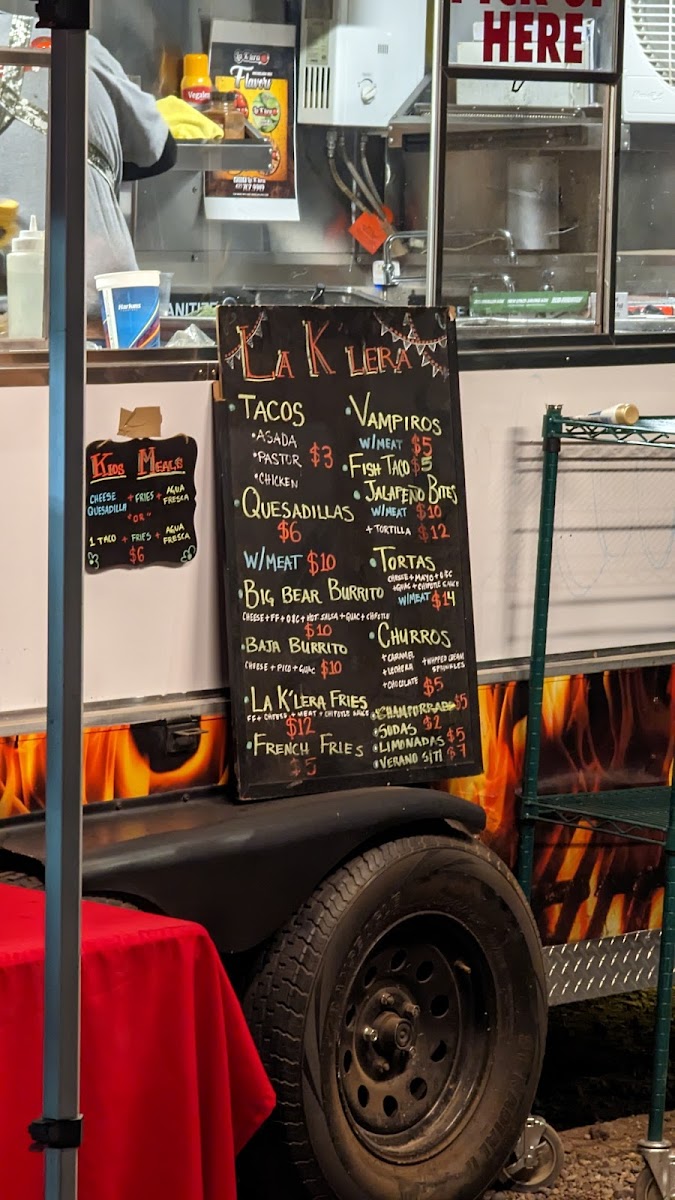 PICK UP
HERE
La K'lera
Flavor
Vegalex
Harkins
SANITIZE
LA K LERA
• TACOS
• ASADA
• PASTOR $3
• CHICKEN
• QUESADILLAS
$6
W/MEAT $10
• BIG BEAR BURRITO
CHEESE+FF+OBC+HOT SALSA+GUAC+CHIPOTLE
$10
• BAJA BURRITO
CHEESE + PICO + GUAC $10
• LA K'LERA FRIES
FF+ CHEESE + MEAT + CHIPOTLE SAUCE
$12
• FRENCH FRIES
$5
• VAMPIROS
W/MEAT $5
• FISH TACO $5
• JALAPEÑO BITES
W/MEAT $10
+ TORTILLA $12
• TORTAS
CHEESE+MAYO+OBC
+GUAC+CHIPOTLE SAUCE
W/MEAT $14
• CHURROS
+ CARAMEL
+ LECHERA + WHIPPED CREAM
SPRINKLES
+ CHOCOLATE $5
• CHAMPURRADO $5
• SODAS $2
• LIMONADAS $5
• VERANO S/TI $7
KIDS MEALS
CHEESE QUESADILLA + FRIES + AGUA FRESCA
"OR"
1 TACO + FRIES + AGUA FRESCA
$6